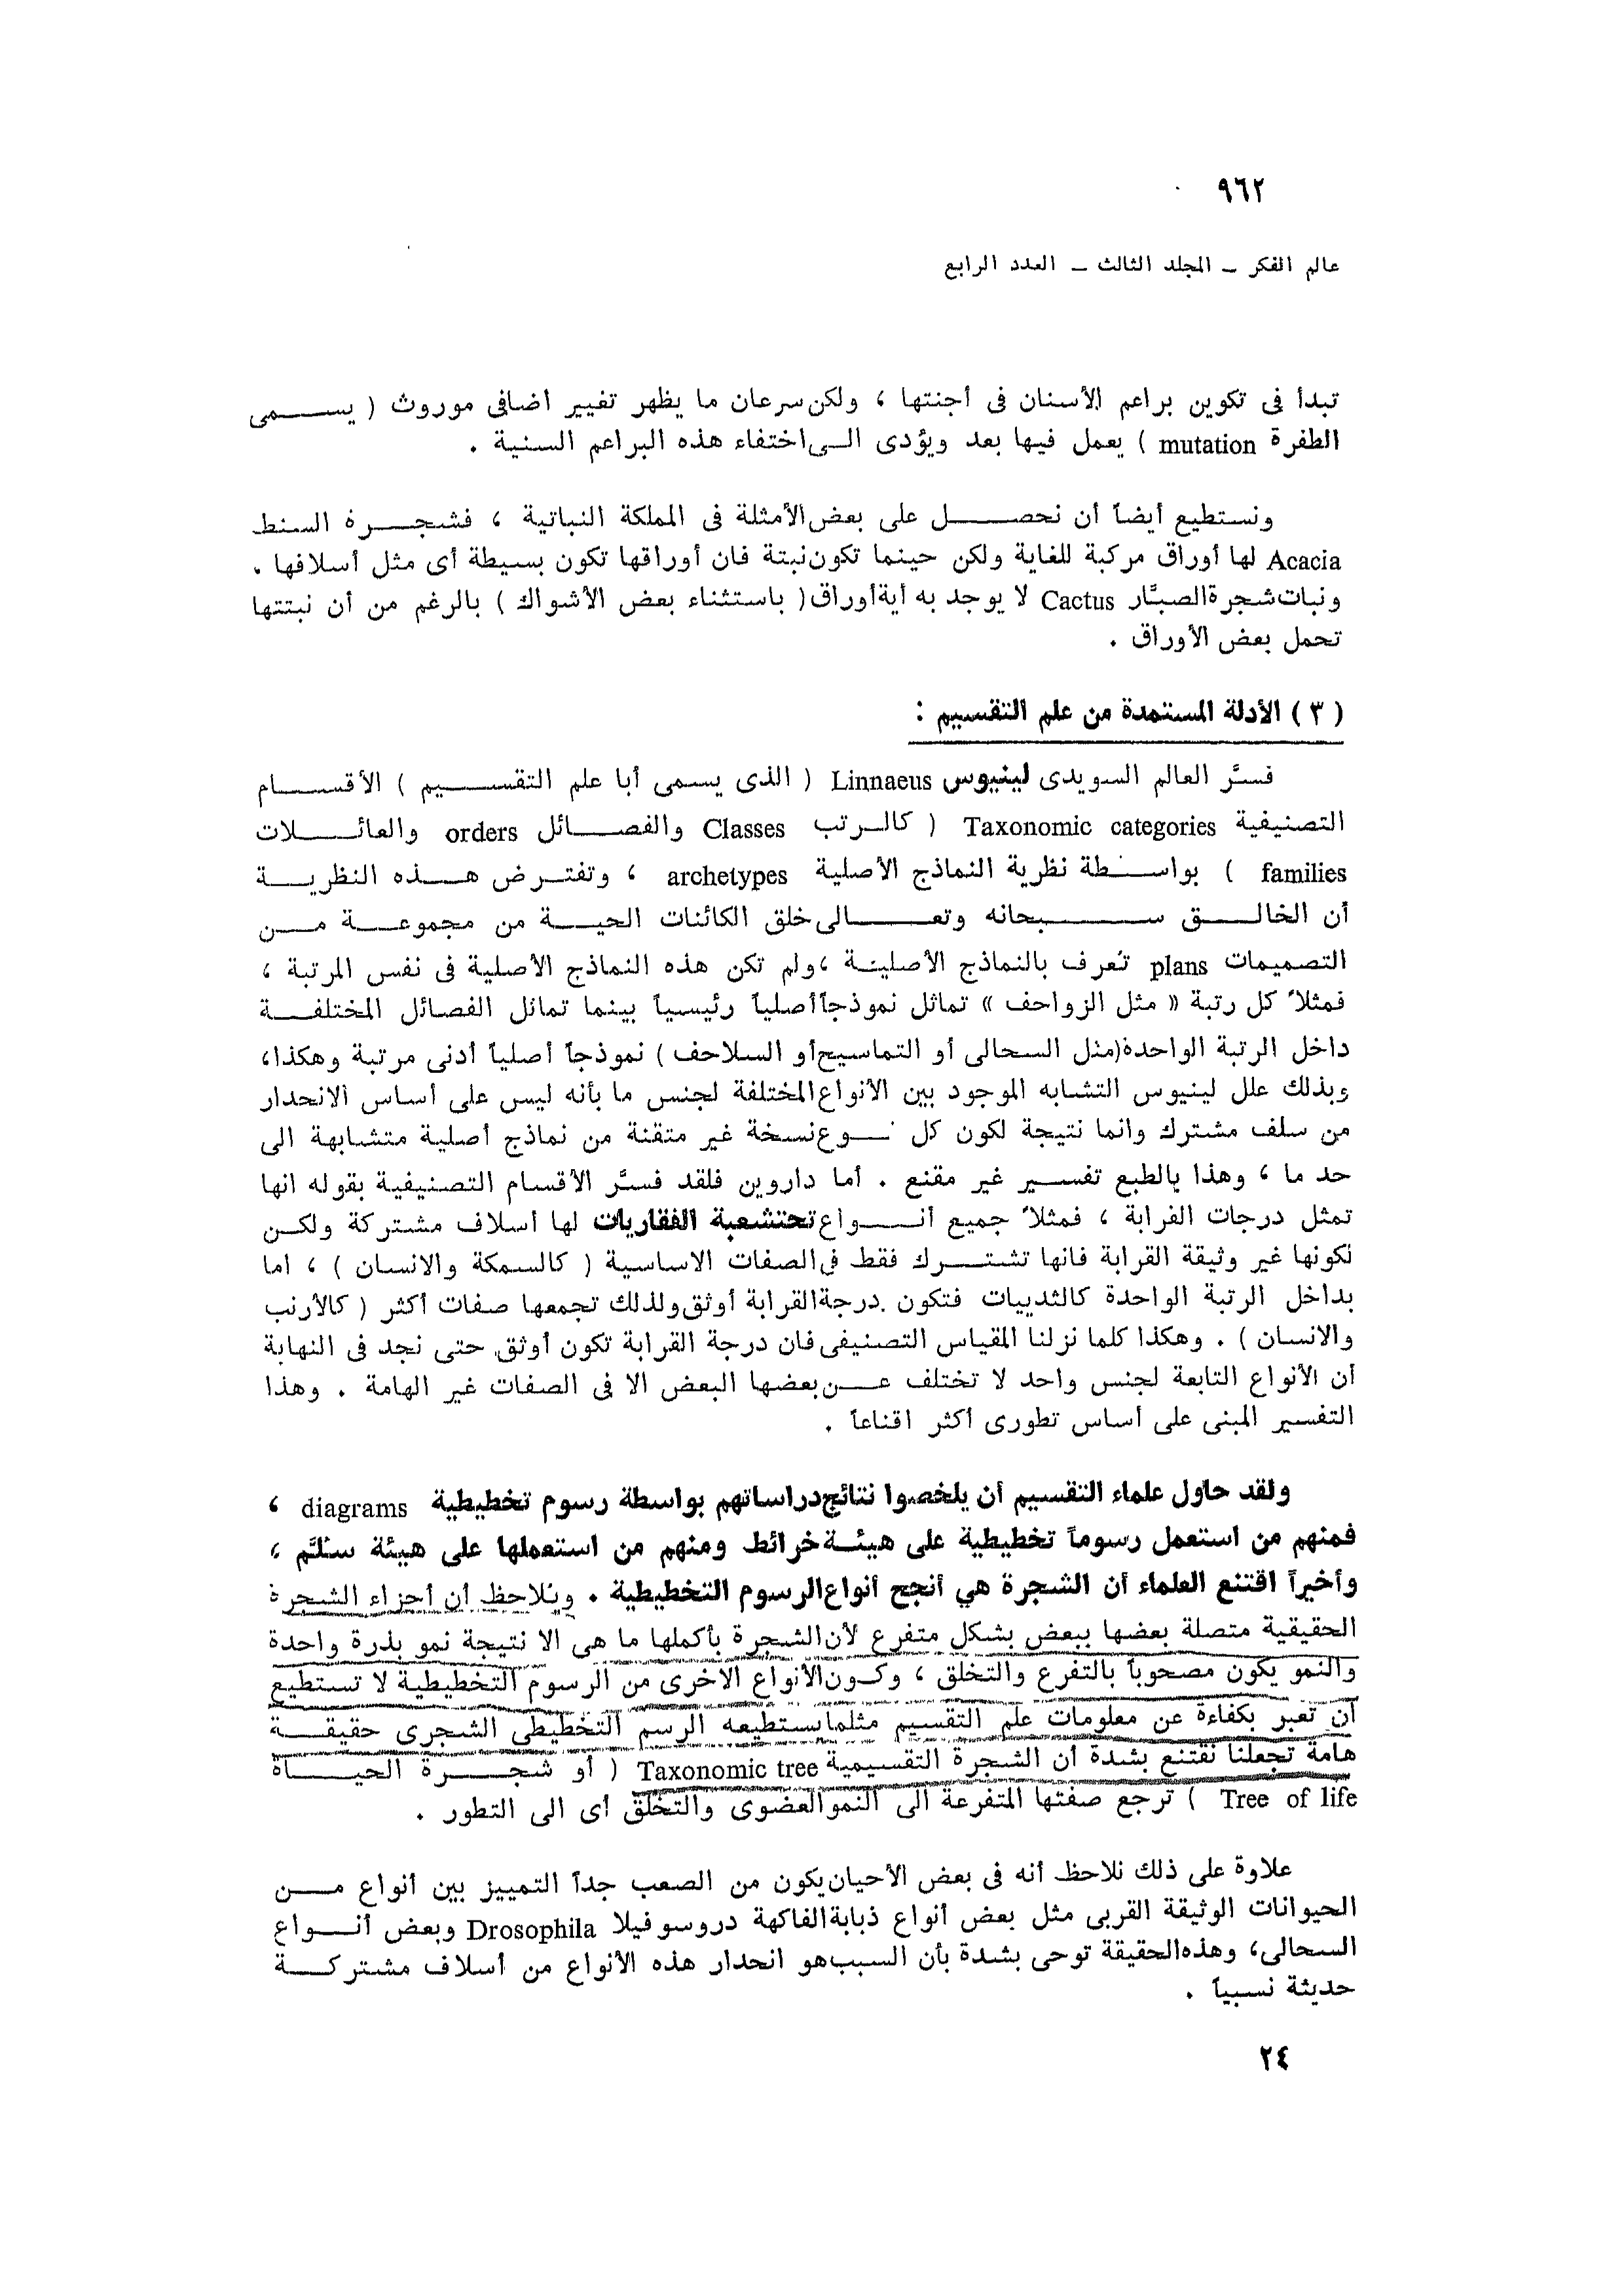 ٩٦٢
عالم الفكر – المجلد الثالث – العدد الرابع
تبدأ فى تكوين براعم الأسنان فى أجنتها ، ولكن سرعان ما يظهر تغيير اضافى موروث ( يسمى
الطفرة mutation ) يعمل فيها بعد ويؤدى الى اختفاء هذه البراعم السنية .
ونستطيع أيضاً أن نحصل على بعض الأمثلة فى المملكة النباتية ، فشجرة السنط
Acacia لها أوراق مركبة للغاية ولكن حينما تكون نبتة فان أوراقها تكون بسيطة أى مثل أسلافها .
ونبات شجرة الصبَّار Cactus لا يوجد به أية أوراق ( باستثناء بعض الأشواك ) بالرغم من أن نبتتها
تحمل بعض الأوراق .
( ٣ ) الأدلة المستمدة من علم التقسيم :
فسَّر العالم السويدى لينيوس Linnaeus ( الذى يسمى أبا علم التقسيم ) الأقسام
التصنيفية Taxonomic categories ( كالرتب Classes والفصائل orders والعائلات
families ) بواسطة نظرية النماذج الأصلية archetypes ، وتفترض هذه النظرية
أن الخالق سبحانه وتعالى خلق الكائنات الحية من مجموعة من
التصميمات plans تُعرف بالنماذج الأصلية ، ولم تكن هذه النماذج الأصلية فى نفس المرتبة ،
فمثلاً كل رتبة « مثل الزواحف » تماثل نموذجاً أصلياً رئيسياً بينما تماثل الفصائل المختلفة
داخل الرتبة الواحدة (مثل السحالى أو التماسيح أو السلاحف ) نموذجاً أصلياً أدنى مرتبة وهكذا،
وبذلك علل لينيوس التشابه الموجود بين الأنواع المختلفة لجنس ما بأنه ليس على أساس الانحدار
من سلف مشترك وانما نتيجة لكون كل نوع نسخة غير متقنة من نماذج أصلية متشابهة الى
حد ما ، وهذا بالطبع تفسير غير مقنع . أما داروين فلقد فسَّر الأقسام التصنيفية بقوله انها
تمثل درجات القرابة ، فمثلاً جميع أنواع تحتشعبة الفقاريات لها أسلاف مشتركة ولكن
لكونها غير وثيقة القرابة فانها تشترك فقط فى الصفات الاساسية ( كالسمكة والانسان ) ، اما
بداخل الرتبة الواحدة كالثدييات فتكون درجة القرابة أوثق ولذلك تجمعها صفات أكثر ( كالأرنب
والانسان ) . وهكذا كلما نزلنا المقياس التصنيفى فان درجة القرابة تكون أوثق حتى نجد فى النهاية
أن الأنواع التابعة لجنس واحد لا تختلف عن بعضها البعض الا فى الصفات غير الهامة . وهذا
التفسير المبنى على أساس تطورى أكثر اقناعاً .
ولقد حاول علماء التقسيم أن يلخصوا نتائج دراساتهم بواسطة رسوم تخطيطية diagrams ،
فمنهم من استعمل رسوماً تخطيطية على هيئة خرائط ومنهم من استعملها على هيئة سُلَّم ،
وأخيراً اقتنع العلماء أن الشجرة هي أنجح أنواع الرسوم التخطيطية . ويُلاحظ أن أجزاء الشجرة
الحقيقية متصلة بعضها ببعض بشكل متفرع لأن الشجرة بأكملها ما هى الا نتيجة نمو بذرة واحدة
والنمو يكون مصحوباً بالتفرع والتخلق ، وكون الأنواع الاخرى من الرسوم التخطيطية لا تستطيع
أن تعبر بكفاءة عن معلومات علم التقسيم مثلما يستطيعه الرسم التخطيطى الشجرى حقيقة
هامة تجعلنا نقتنع بشدة أن الشجرة التقسيمية Taxonomic tree ( أو شجرة الحياة
Tree of life ) ترجع صفتها المتفرعة الى النمو العضوى والتخلق أى الى التطور .
علاوة على ذلك نلاحظ أنه فى بعض الأحيان يكون من الصعب جداً التمييز بين أنواع من
الحيوانات الوثيقة القربى مثل بعض أنواع ذبابة الفاكهة دروسوفيلا Drosophila وبعض أنواع
السحالى، وهذه الحقيقة توحى بشدة بأن السبب هو انحدار هذه الأنواع من أسلاف مشتركة
حديثة نسبياً .
٢٤